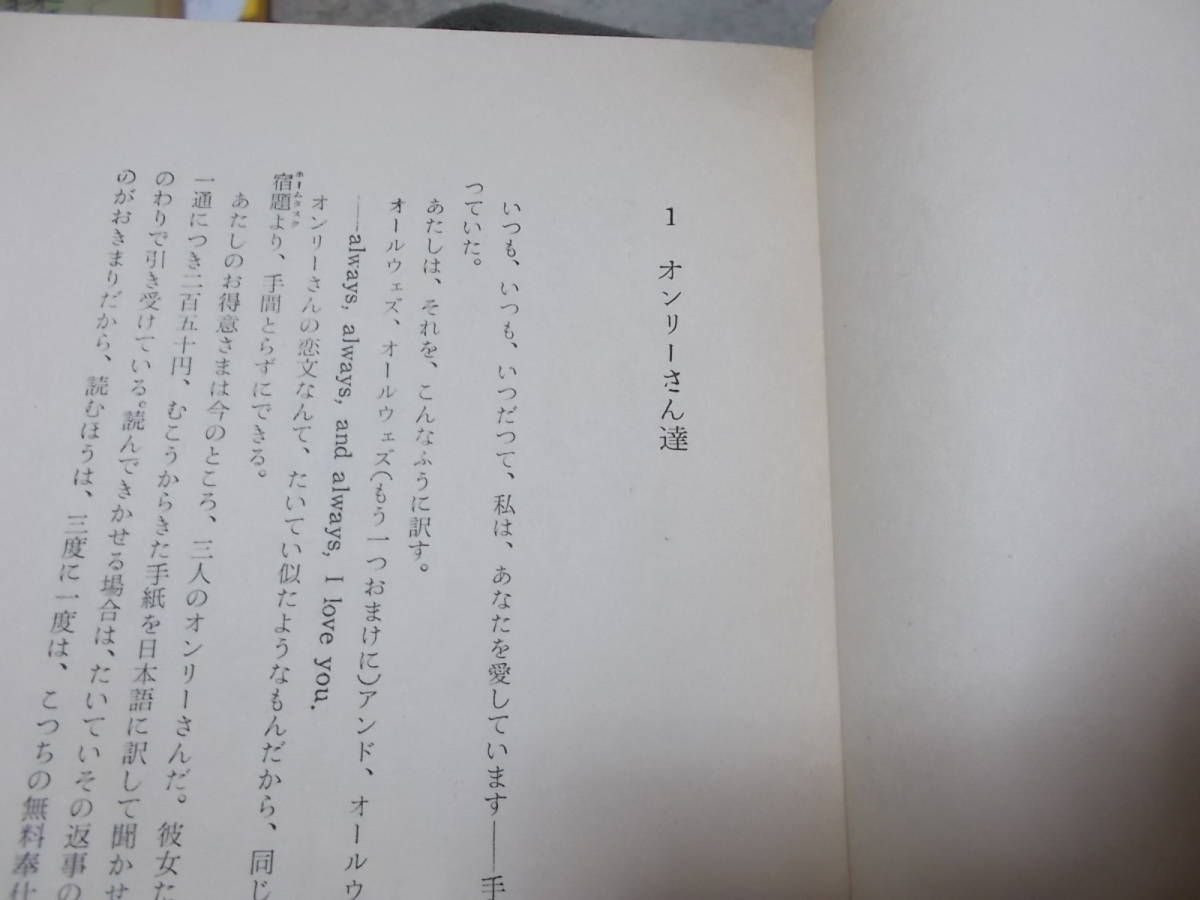 1 オンリーさん達
いつも、いつも、いつだつて、私は、あなたを愛しています——手
つていた。
あたしは、それを、こんなふうに訳す。
オールウェズ、オールウェズ(もう一つおまけに)アンド、オールウ
——always, always, and always, I love you.
オンリーさんの恋文なんて、たいてい似たようなもんだから、同じ
宿題より、手間とらずにできる。
ホームタスク
あたしのお得意さまは今のところ、三人のオンリーさんだ。彼女た
一通につき二百五十円、むこうからきた手紙を日本語に訳して聞かせ
のわりで引き受けている。読んできかせる場合は、たいていその返事の
のがおきまりだから、読むほうは、三度に一度は、こつちの無料奉仕